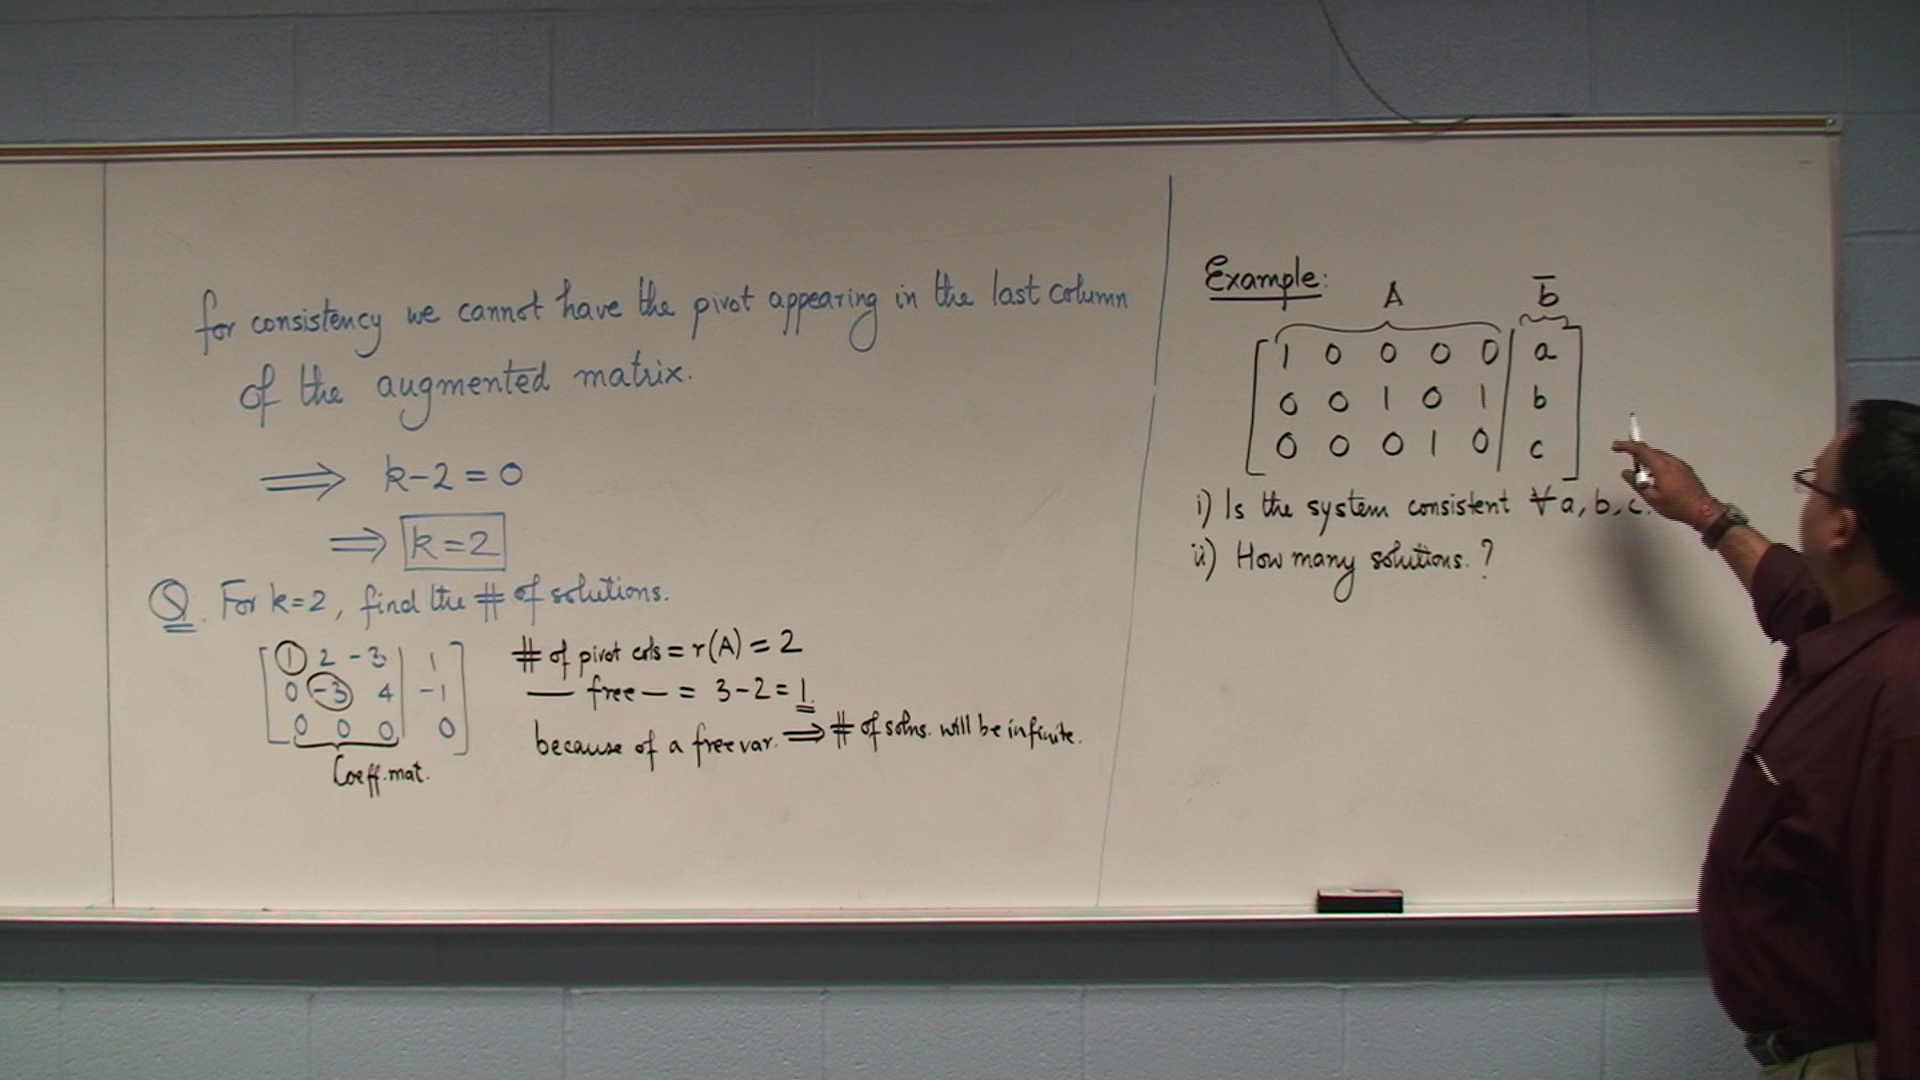 for consistency we cannot have the pivot appearing in the last column
of the augmented matrix.
⟹ k-2=0
⟹ k=2
Q. For k=2, find the # of solutions.
1 2 -3 | 1
0 -3 4 | -1
0 0 0 | 0
Coeff. mat.
# of pivot cols = r(A) = 2
— free — = 3-2 = 1.
because of a free var. ⟹ # of solns. will be infinite.
Example:
A b̅
1 0 0 0 0 | a
0 0 1 0 1 | b
0 0 0 1 0 | c
i) Is the system consistent ∀ a, b, c.
ii) How many solutions.?